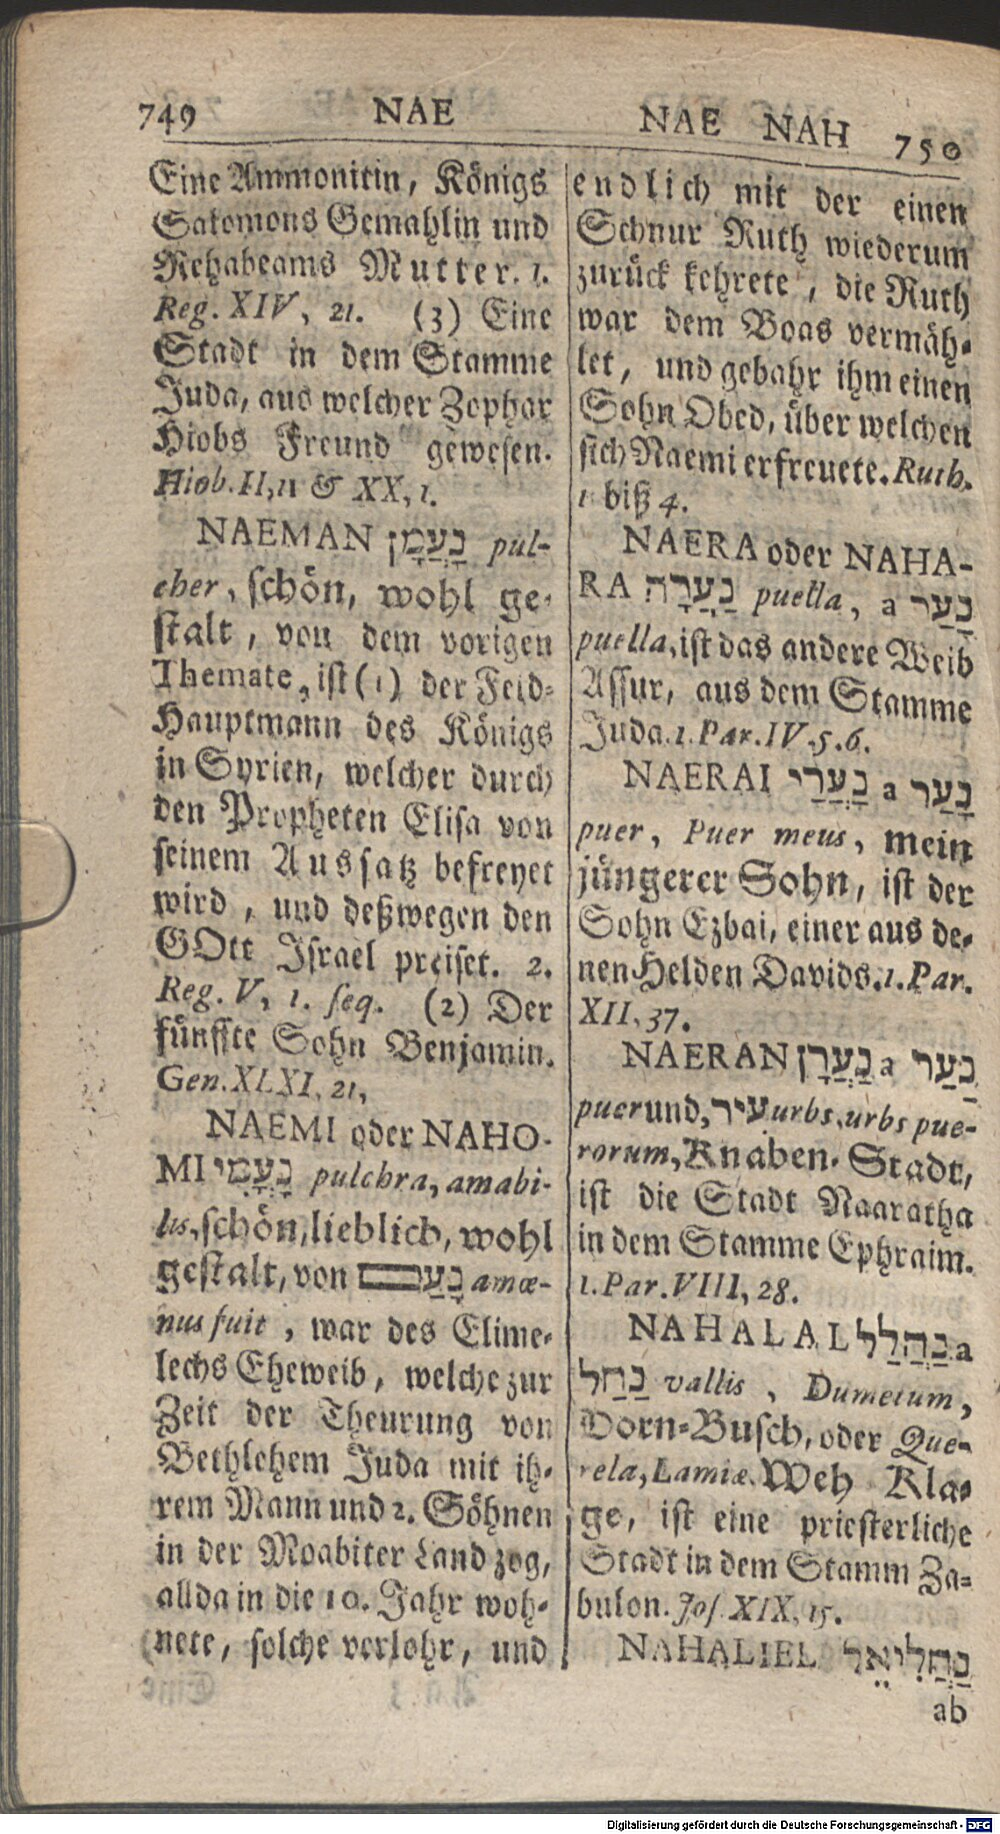 749 NAE
Eine Ammonitin, Königs
Salomons Gemahlin und
Rehabeams Mutter. 1.
Reg. XIV, 21. (3) Eine
Stadt in dem Stamme
Juda, aus welcher Zophar
Hiobs Freund gewesen.
Hiob. II, 11 & XX, 1.
NAEMAN נַעֲמָן pul-
cher, schön, wohl ge-
stalt, von dem vorigen
Themate, ist (1) der Feld-
Hauptmann des Königs
in Syrien, welcher durch
den Propheten Elisa von
seinem Aussatz befreyet
wird, und deßwegen den
GOtt Israel preiset. 2.
Reg. V, 1. seq. (2) Der
fünffte Sohn Benjamin.
Gen. XLXI, 21,
NAEMI oder NAHO-
MI נָעֳמִי pulchra, amabi-
lis, schön, lieblich, wohl
gestalt, von נָעַם amœ-
nus fuit, war des Elime-
lechs Eheweib, welche zur
Zeit der Theurung von
Bethlehem Juda mit ih-
rem Mann und 2. Söhnen
in der Moabiter Land zog,
allda in die 10. Jahr woh-
nete, solche verlohr, und
NAE NAH 750
endlich mit der einen
Schnur Ruth wiederum
zurück kehrete, die Ruth
war dem Boas vermäh-
let, und gebahr ihm einen
Sohn Obed, über welchen
sich Naemi erfreuete. Ruth.
1 biß 4.
NAERA oder NAHA-
RA נַעֲרָה puella, a נָעַר
puella, ist das andere Weib
Assur, aus dem Stamme
Juda. 1. Par. IV. 5. 6.
NAERAI נַעֲרַי a נָעַר
puer, Puer meus, mein
jüngerer Sohn, ist der
Sohn Ezbai, einer aus de-
nen Helden Davids. 1. Par.
XII, 37.
NAERAN נַעֲרָן a נַעַר
puer und, עיר urbs, urbs pue-
rorum, Knaben-Stadt,
ist die Stadt Naaratha
in dem Stamme Ephraim.
1. Par. VIII, 28.
NAHALAL נַהֲלַל a
נַחַל vallis, Dumetum,
Dorn-Busch, oder Que-
rela, Lamiæ. Weh Kla-
ge, ist eine priesterliche
Stadt in dem Stamm Za-
bulon. Jos. XIX, 15.
NAHALIEL נַחֲלִיאֵל
ab
Digitalisierung gefördert durch die Deutsche Forschungsgemeinschaft - DFG